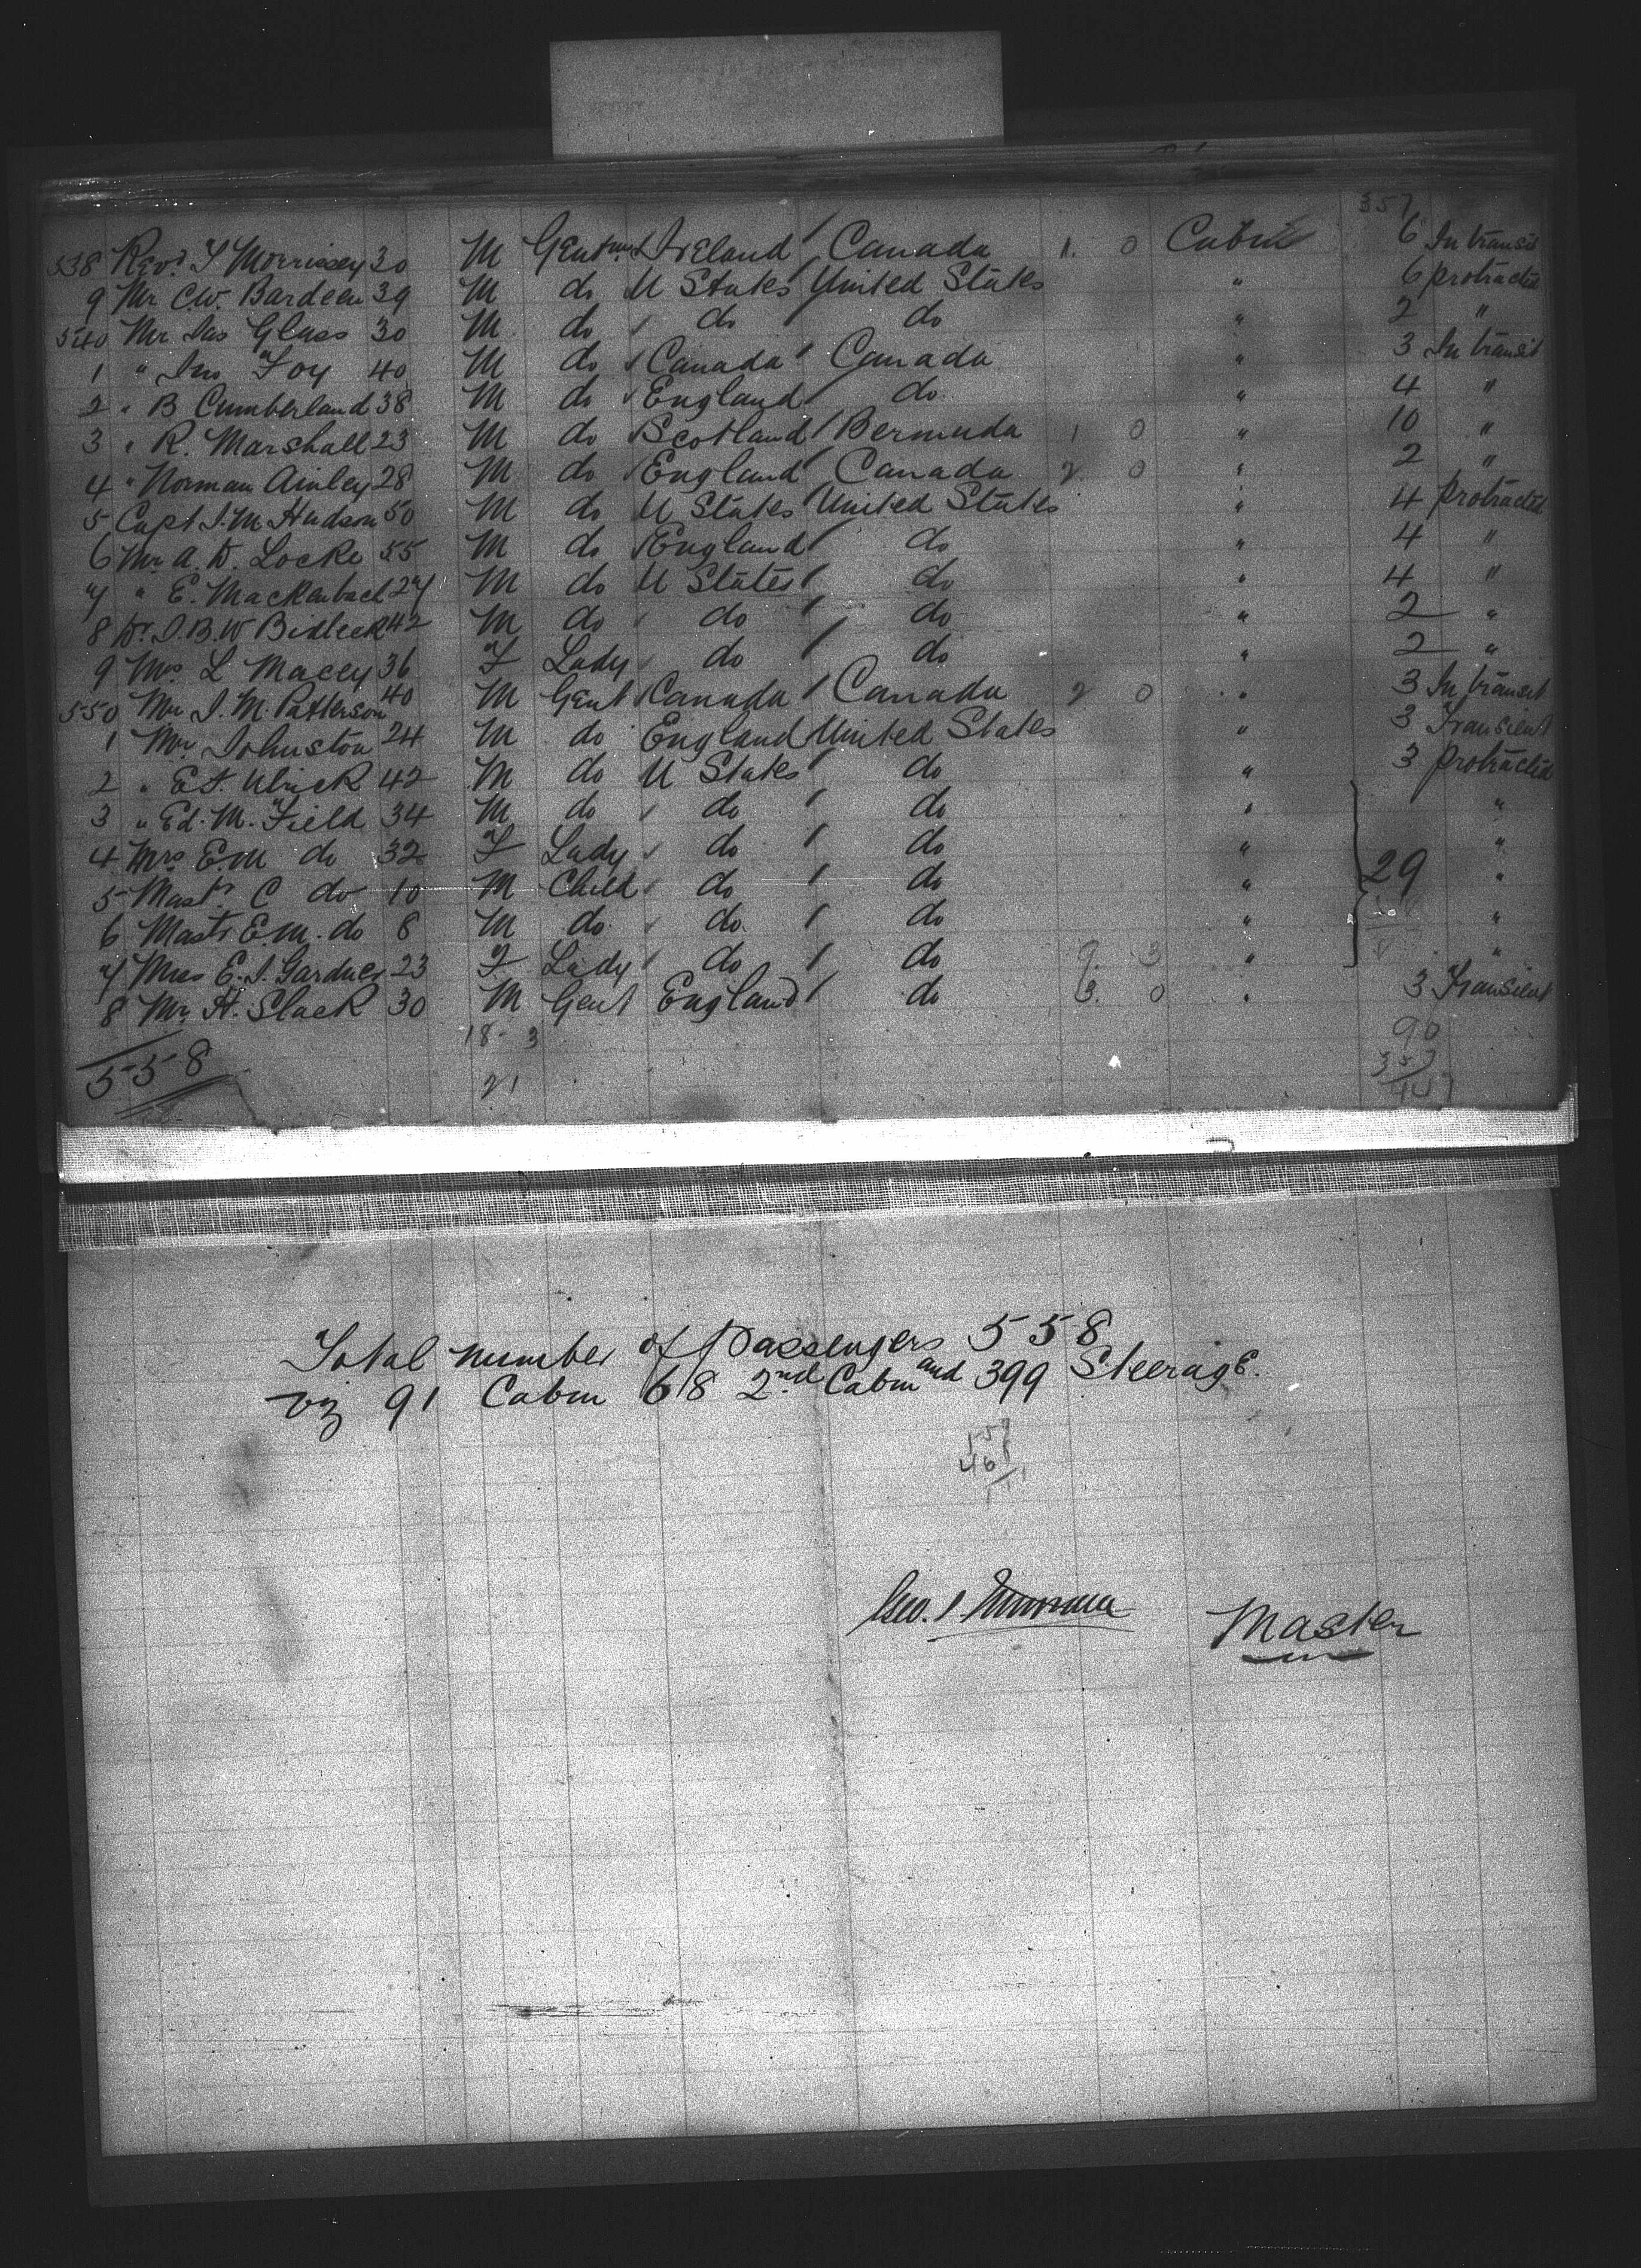 357
538 Revd. T Morrissey 30 M Gentman Ireland Canada 1. 0 Cabin 6 In transit
9 Mr C.W. Bardeen 39 M do U States United States " 6 protracted
540 Mr Jas Glass 30 M do do do " 2 "
1 " Jno Foy 40 M do Canada Canada " 3 In transit
2 " B Cumberland 38 M do England do " 4 "
3 " R. Marshall 23 M do Scotland Bermuda 1 0 " 10 "
4 " Norman Ainley 28 M do England Canada 2 0 " 2 "
5 Capt J.M Hudson 50 M do U States United States " 4 protracted
6 Mr A. D. Locke 55 M do England do " 4 "
7 " E. Mackenbach 27 M do U States do " 4 "
8 Dr. J.B.W 42 M do do do " 2 "
9 Mrs L Macey 36 F Lady do do " 2 "
550 Mr J. M. Patterson 40 M Gent Canada Canada 2 0 " 3 In transit
1 Mr Johnston 24 M do England United States " 3 Transient
2 " E. Ulrick 42 M do U States do " 3 protracted
3 " Ed. M. Field 34 M do do do " "
4 Mrs E.M do 32 F Lady do do " "
5 Mastr. C do 10 M Child do do " 29 "
6 Mastr E.M. do 8 M do do do " "
7 Miss E. J. Gardner 23 F Lady do do 9. 3 " "
8 Mr H. Slack 30 M Gent England do 3. 0 " 3 Transient
18 - 3 90
558 357
21
Total number of Passengers 558
viz 91 Cabin 68 2nd Cabin and 399 Steerage.
Geo. S.
Master